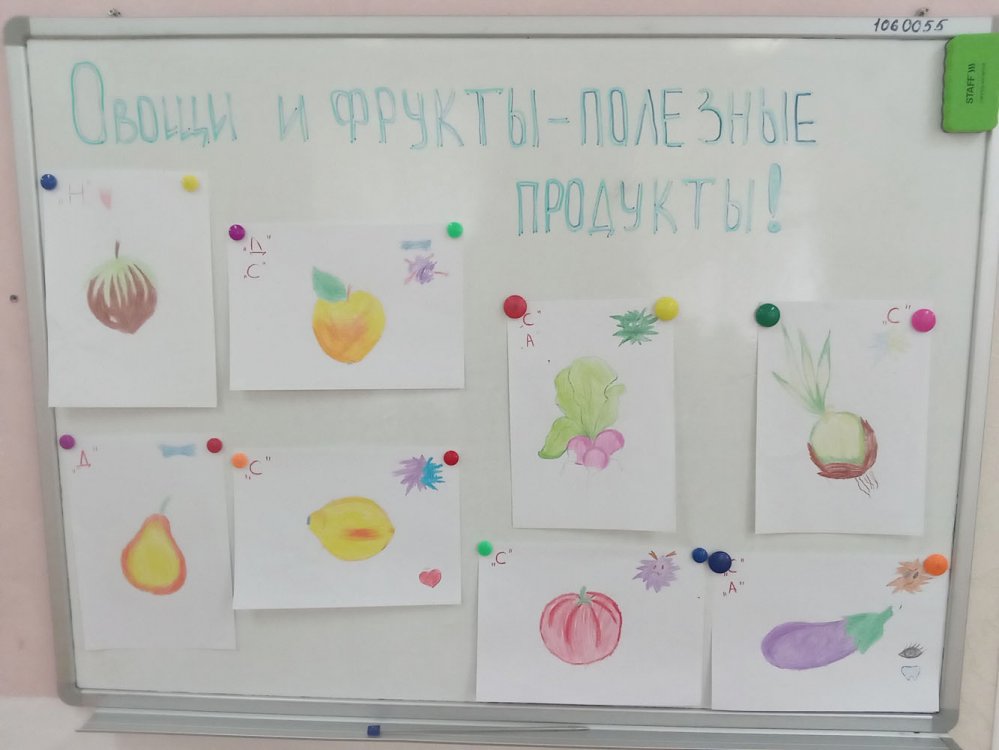 1060055
STAFF
Овощи и фрукты - полезные
продукты!
„Н"
„Д"
„С"
„С"
„А
„С"
„Д"
„С"
„С"
„С"
„А"